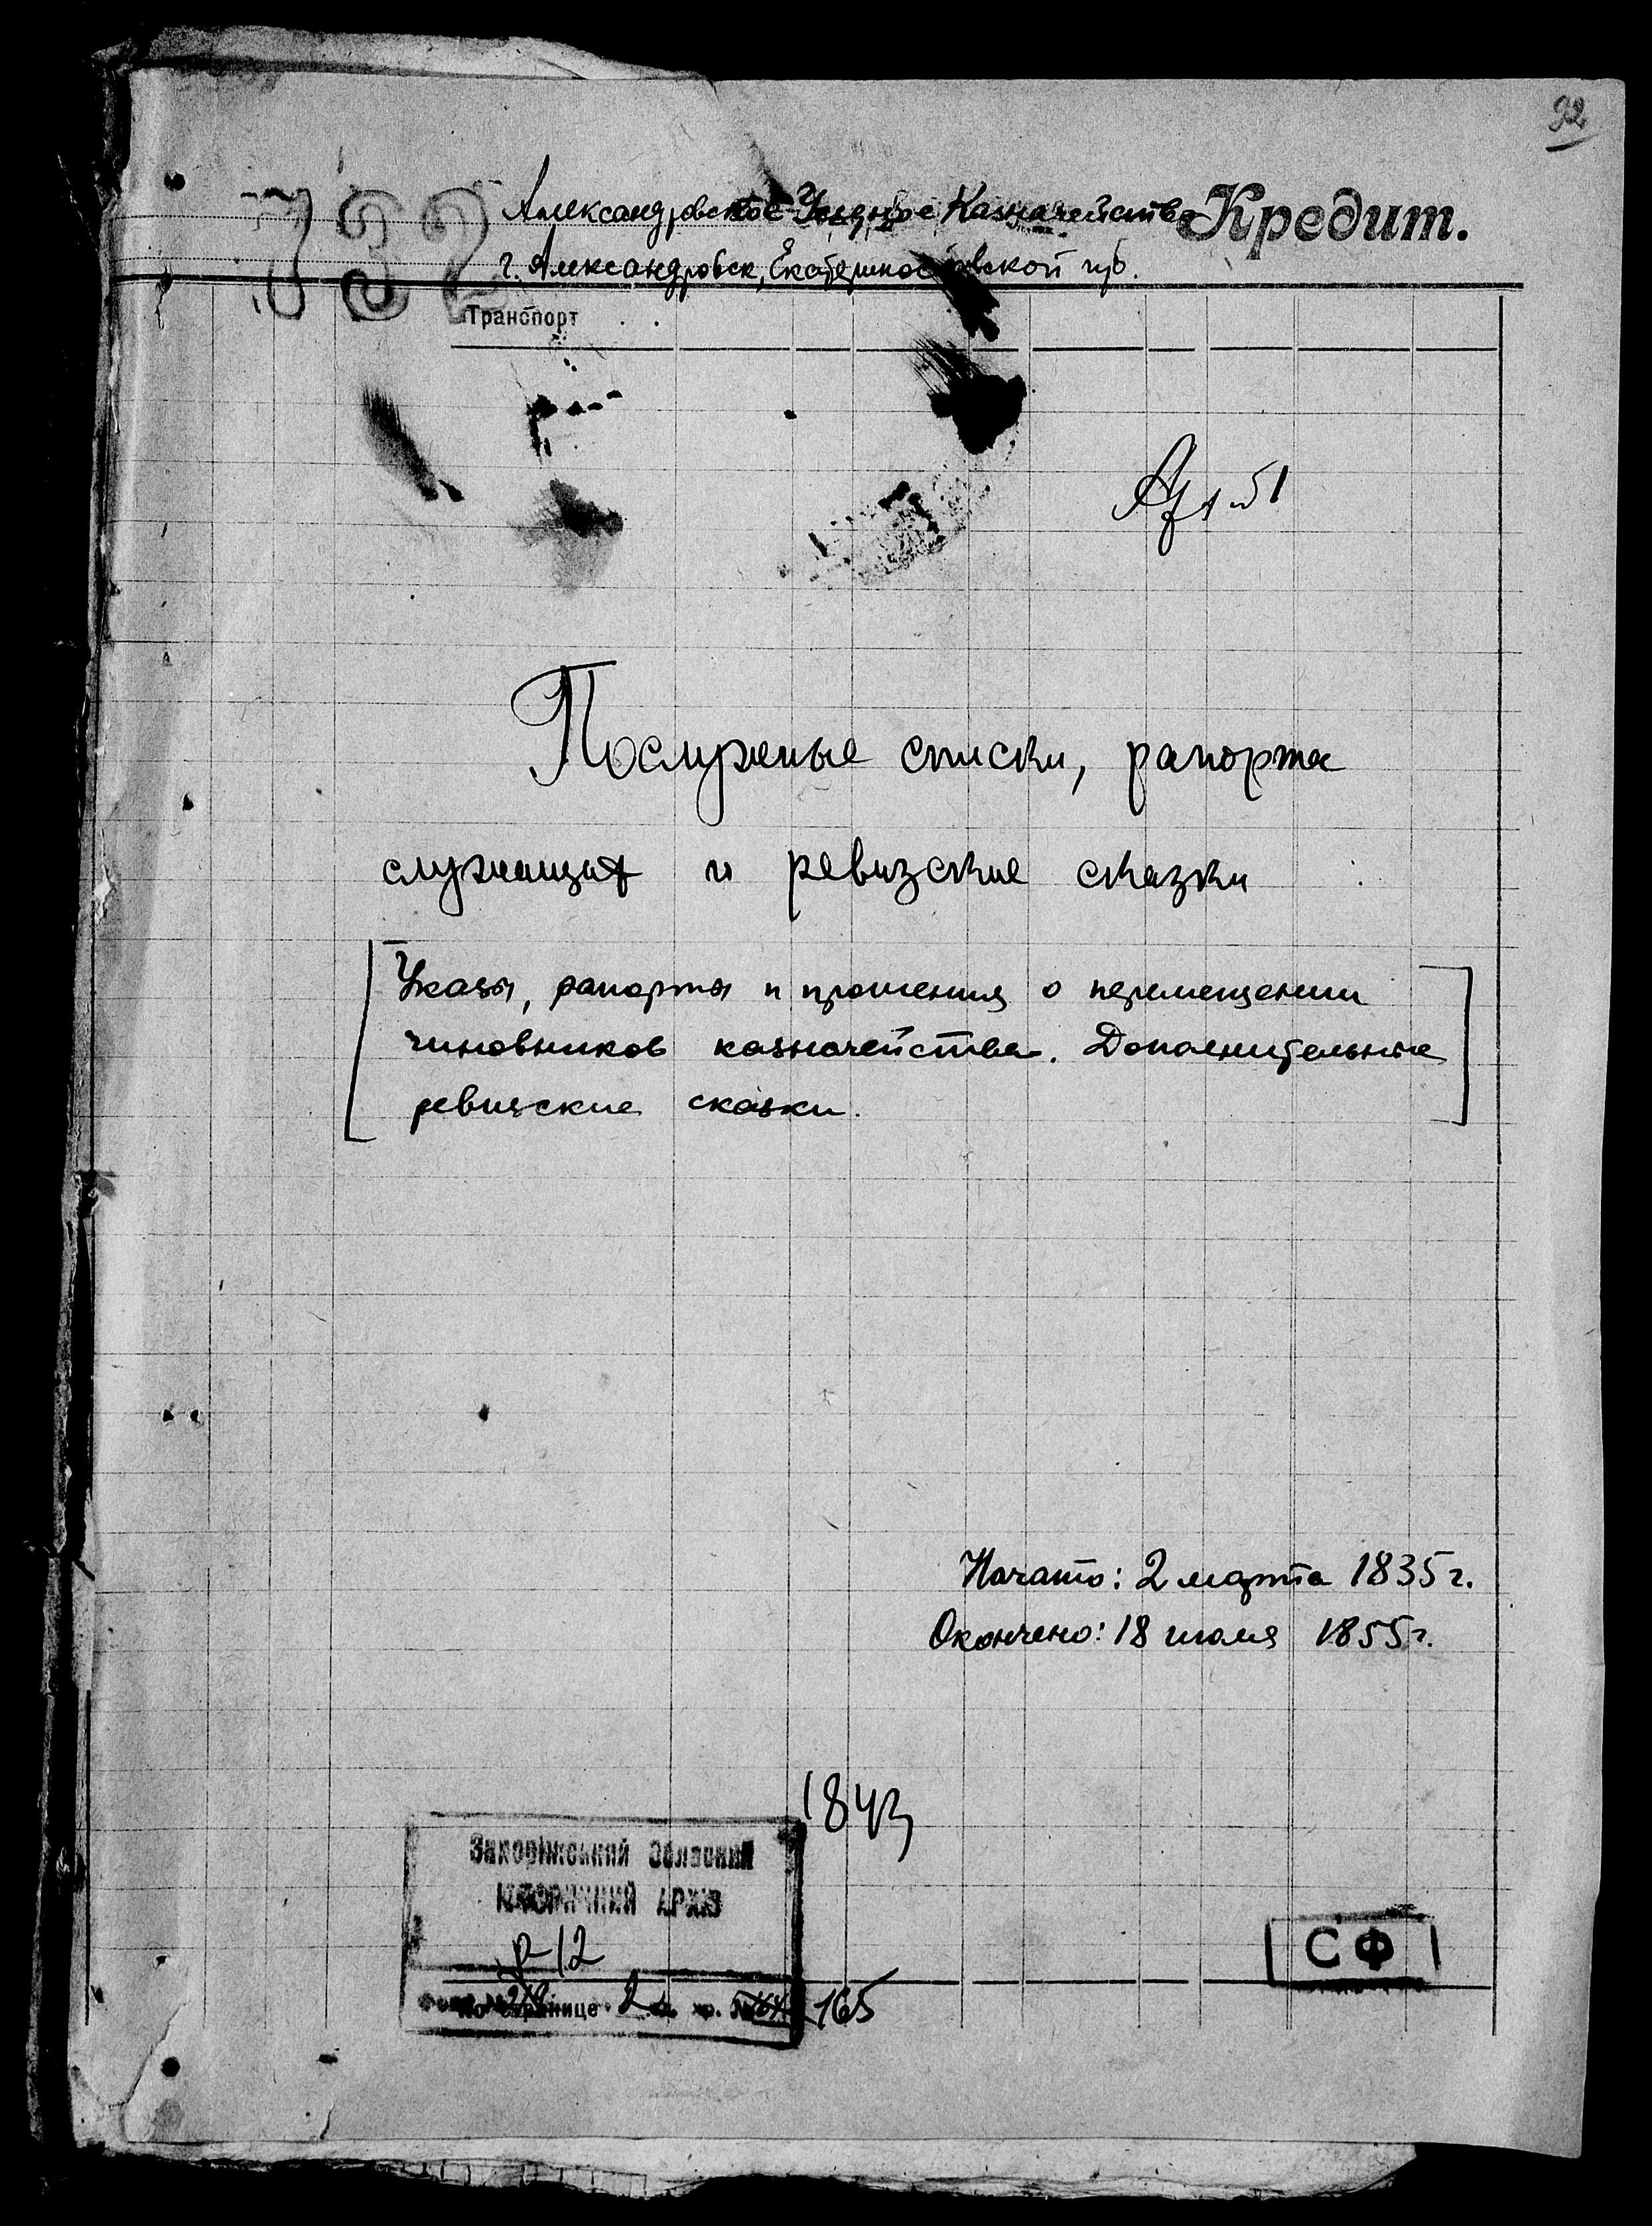 92
732
Александровское Уездное Казначейство Кредит.
г. Александровск, Екатеринославской губ.
Транспорт
Послужные списки, рапорта
служащих и ревизские сказки
[Указы, рапорты и прошения о перемещении
чиновников казначейства. Дополнительные
ревизские сказки.]
Начато: 2 марта 1835 г.
Окончено: 18 июля 1855 г.
1843
Запорізький Обласний
Історичний Архів
р-12
2 165
СФ